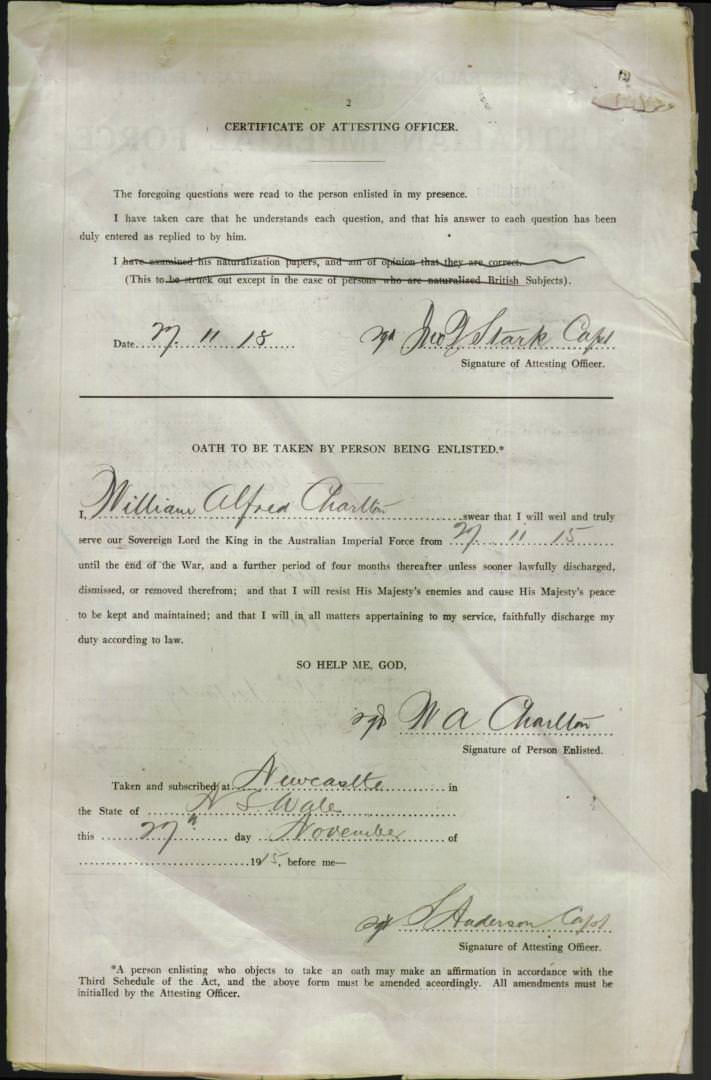 2
CERTIFICATE OF ATTESTING OFFICER.
The foregoing questions were read to the person enlisted in my presence.
I have taken care that he understands each question, and that his answer to each question has been
duly entered as replied to by him.
I have examined his naturalization papers, and am of opinion that they are correct.
(This to be struck out except in the case of persons who are naturalized British Subjects).
Date 27. 11 15 sgd Stark Capt
Signature of Attesting Officer.
OATH TO BE TAKEN BY PERSON BEING ENLISTED.*
I, William Alfred Charlton swear that I will well and truly
serve our Sovereign Lord the King in the Australian Imperial Force from 27. 11 15
until the end of the War, and a further period of four months thereafter unless sooner lawfully discharged,
dismissed, or removed therefrom; and that I will resist His Majesty's enemies and cause His Majesty's peace
to be kept and maintained; and that I will in all matters appertaining to my service, faithfully discharge my
duty according to law.
SO HELP ME, GOD,
sgd W A Charlton
Signature of Person Enlisted.
Taken and subscribed at Newcastle in
the State of N S Wales
this 27th day November of
1915, before me—
sgd S Anderson Capt
Signature of Attesting Officer.
*A person enlisting who objects to take an oath may make an affirmation in accordance with the
Third Schedule of the Act, and the above form must be amended accordingly. All amendments must be
initialled by the Attesting Officer.